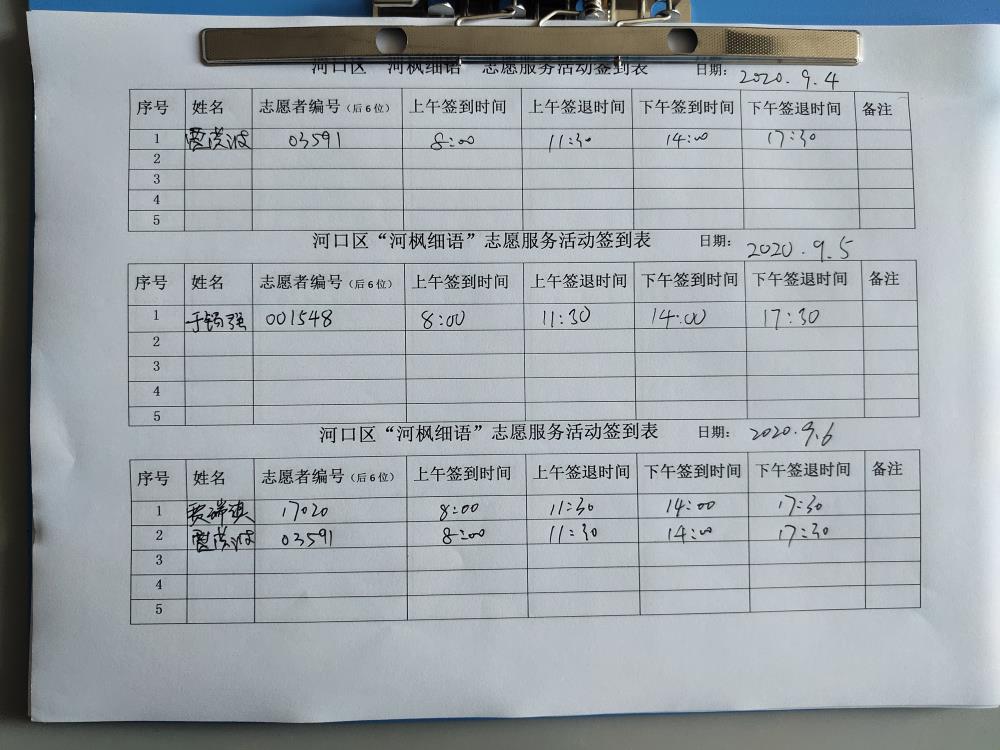 河口区“河枫细语”志愿服务活动签到表 日期: 2020.9.4
序号 姓名 志愿者编号(后6位) 上午签到时间 上午签退时间 下午签到时间 下午签退时间 备注
1 03591 8:00 11:30 14:00 17:30
2
3
4
5
河口区“河枫细语”志愿服务活动签到表 日期: 2020.9.5
序号 姓名 志愿者编号(后6位) 上午签到时间 上午签退时间 下午签到时间 下午签退时间 备注
1 001548 8:00 11:30 14:00 17:30
2
3
4
5
河口区“河枫细语”志愿服务活动签到表 日期: 2020.9.6
序号 姓名 志愿者编号(后6位) 上午签到时间 上午签退时间 下午签到时间 下午签退时间 备注
1 贾瑞琪 17020 8:00 11:30 14:00 17:30
2 03591 8:00 11:30 14:00 17:30
3
4
5